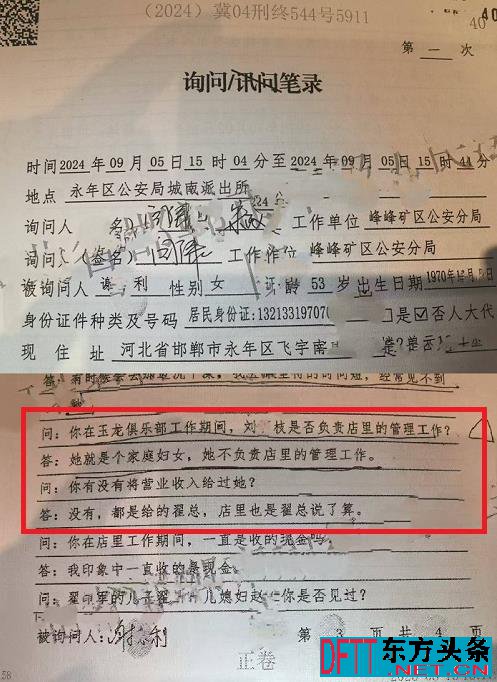 （2024）冀04刑终544号5911
40
40
第 一 次
询问/讯问笔录
时间 2024 年 09 月 05 日 15 时 04 分至 2024 年 09 月 05 日 15 时 44 分
地点 永年区公安局城南派出所
询问人 工作单位 峰峰矿区公安分局
工作单位 峰峰矿区公安分局
被询问人 利 性别 女 年龄 53 岁 出生日期 1970年
身份证件种类及号码 居民身份证:13213319707 □是☑否人大代
现 住 址 河北省邯郸市永年区飞宇南
答:
经常见不到
问: 你在玉龙俱乐部工作期间, 刘 枝是否负责店里的管理工作?
答: 她就是个家庭妇女, 她不负责店里的管理工作。
问: 你有没有将营业收入给过她?
答: 没有, 都是给的翟总, 店里也是翟总说了算。
问: 你在店里工作期间, 一直是收的现金吗
答: 我印象中一直收的是现金
问: 翟 里的儿子翟 儿媳妇赵 你是否见过?
被询问人: 利
第 3 页 共 4 页
正卷
58
DFTT 东方头条
.NET.CN